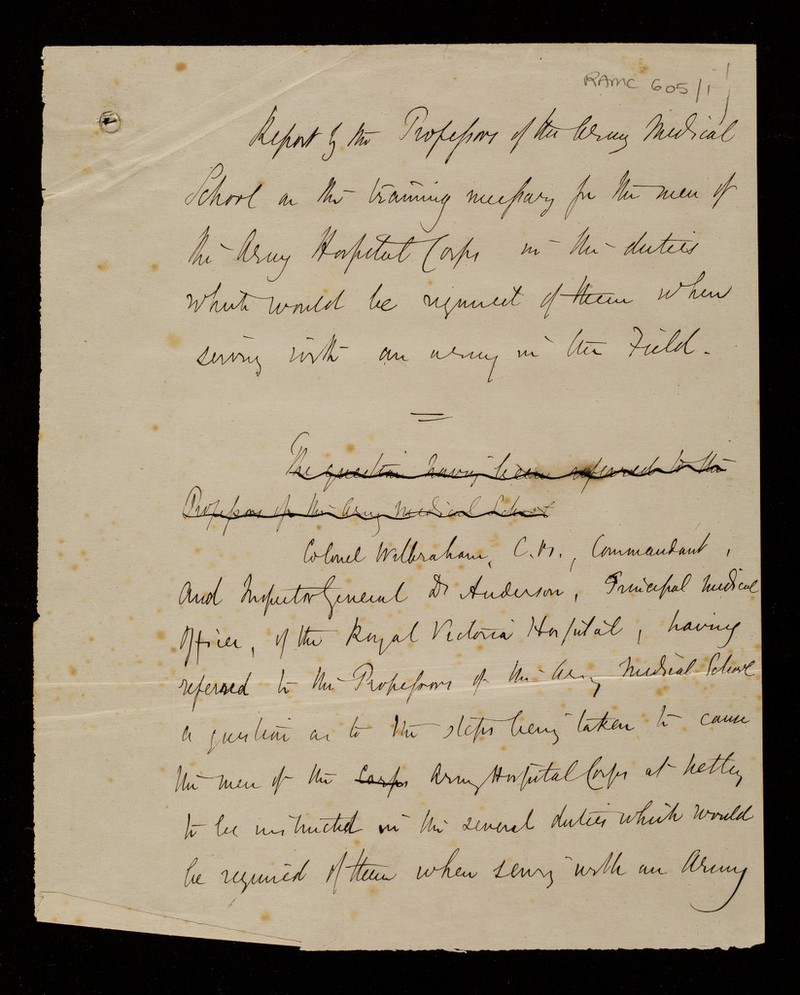 RAMC 605/1
Report by the Professors of the Army Medical
School on the training necessary for the men of
the Army Hospital Corps in the duties
which would be required of them when
serving with an army in the Field.
The question having been referred to the
Professors of the Army Medical School
Colonel Wilbraham, C.B., Commandant,
and Inspector General Dr Anderson, Principal Medical
Officer, of the Royal Victoria Hospital, having
referred to the Professors of the Army Medical School
a question as to the steps being taken to cause
the men of the Corps Army Hospital Corps at Netley
to be instructed in the several duties which would
be required of them when serving with an Army